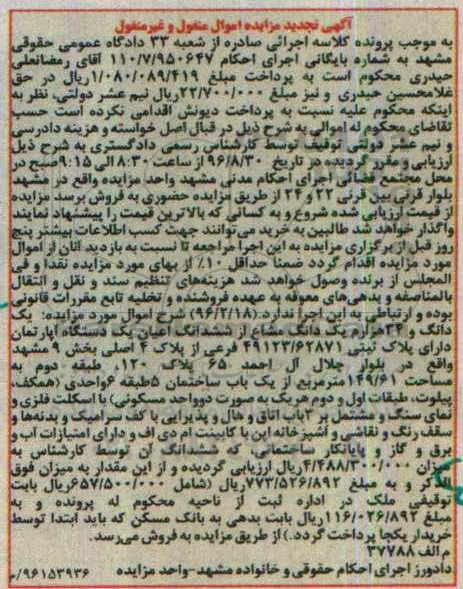 آگهی تجدید مزایده اموال منقول و غیرمنقول
به موجب پرونده کلاسه اجرائی صادره از شعبه ۳۳ دادگاه عمومی حقوقی
مشهد به شماره بایگانی اجرای احکام ۱۱۰/۷/۹۵۰۶۴۷ آقای رمضانعلی
حیدری محکوم است به پرداخت مبلغ ۱/۰۸۰/۰۸۹/۴۱۹ریال در حق
غلامحسین حیدری و نیز مبلغ ۲۲/۷۰۰/۰۰۰ریال نیم عشر دولتی، نظر به
اینکه محکوم علیه نسبت به پرداخت دیونش اقدامی نکرده است حسب
تقاضای محکوم له اموالی به شرح ذیل در قبال اصل خواسته و هزینه دادرسی
و نیم عشر دولتی توقیف توسط کارشناس رسمی دادگستری به شرح ذیل
ارزیابی و مقرر گردیده در تاریخ ۹۶/۸/۳۰ از ساعت ۸:۳۰ الی ۹:۱۵صبح در
محل مجتمع قضائی اجرای احکام مدنی مشهد واحد مزایده واقع در مشهد
بلوار قرنی بین قرنی ۲۲ و ۲۴ از طریق مزایده حضوری به فروش برسد مزایده
از قیمت ارزیابی شده شروع و به کسانی که بالاترین قیمت را پیشنهاد نمایند
واگذار خواهد شد طالبین به خرید می‌توانند جهت کسب اطلاعات بیشتر پنج
روز قبل از برگزاری مزایده به این اجرا مراجعه تا نسبت به بازدید آنان از اموال
مورد مزایده اقدام گردد ضمنا حداقل ۱۰٪ از بهای مورد مزایده نقدا و فی
المجلس از برنده وصول خواهد شد هزینه‌های تنظیم سند و نقل و انتقال
بالمناصفه و بدهی‌های معوقه به عهده فروشنده و تخلیه تابع مقررات قانونی
بوده و ارتباطی به این اجرا ندارد.(۹۶/۲/۱۸) شرح اموال مورد مزایده: یک
دانگ و ۲۴هزارم یک دانگ مشاع از ششدانگ اعیان یک دستگاه آپارتمان
دارای پلاک ثبتی ۴۹۱۲۳/۶۲۸۷۱ فرعی از پلاک ۴ اصلی بخش ۹ مشهد
واقع در بلوار جلال آل احمد ۶۵ پلاک ۱۲۰، طبقه دوم به
مساحت ۱۴۹/۶۱مترمربع از یک باب ساختمان ۵طبقه ۶واحدی (همکف،
پیلوت، طبقات اول و دوم هریک به صورت دوواحد مسکونی) با اسکلت فلزی و
نمای سنگ و مشتمل بر ۲باب اتاق و هال و پذیرایی با کف سرامیک و بدنه‌ها و
سقف رنگ و نقاشی و آشپزخانه اپن با کابینت ام دی اف و دارای امتیازات آب و
برق و گاز و پایانکار ساختمانی، که ششدانگ آن توسط کارشناس به
میزان ۴/۴۸۸/۳۰۰/۰۰۰ریال ارزیابی گردیده و از این مقدار به میزان فوق
الذکر و به مبلغ ۷۷۳/۵۲۶/۸۹۲ریال (شامل ۶۵۷/۵۰۰/۰۰۰ریال بابت
توقیفی ملک در اداره ثبت از ناحیه محکوم له پرونده و به
مبلغ ۱۱۶/۰۲۶/۸۹۲ریال بابت بدهی به بانک مسکن که باید ابتدا توسط
خریدار یکجا پرداخت گردد.) از طریق مزایده به فروش می‌رسد.
م الف ۳۷۷۸۸
دادورز اجرای احکام حقوقی و خانواده مشهد-واحد مزایده ۹۶۱۵۳۹۳۶/م